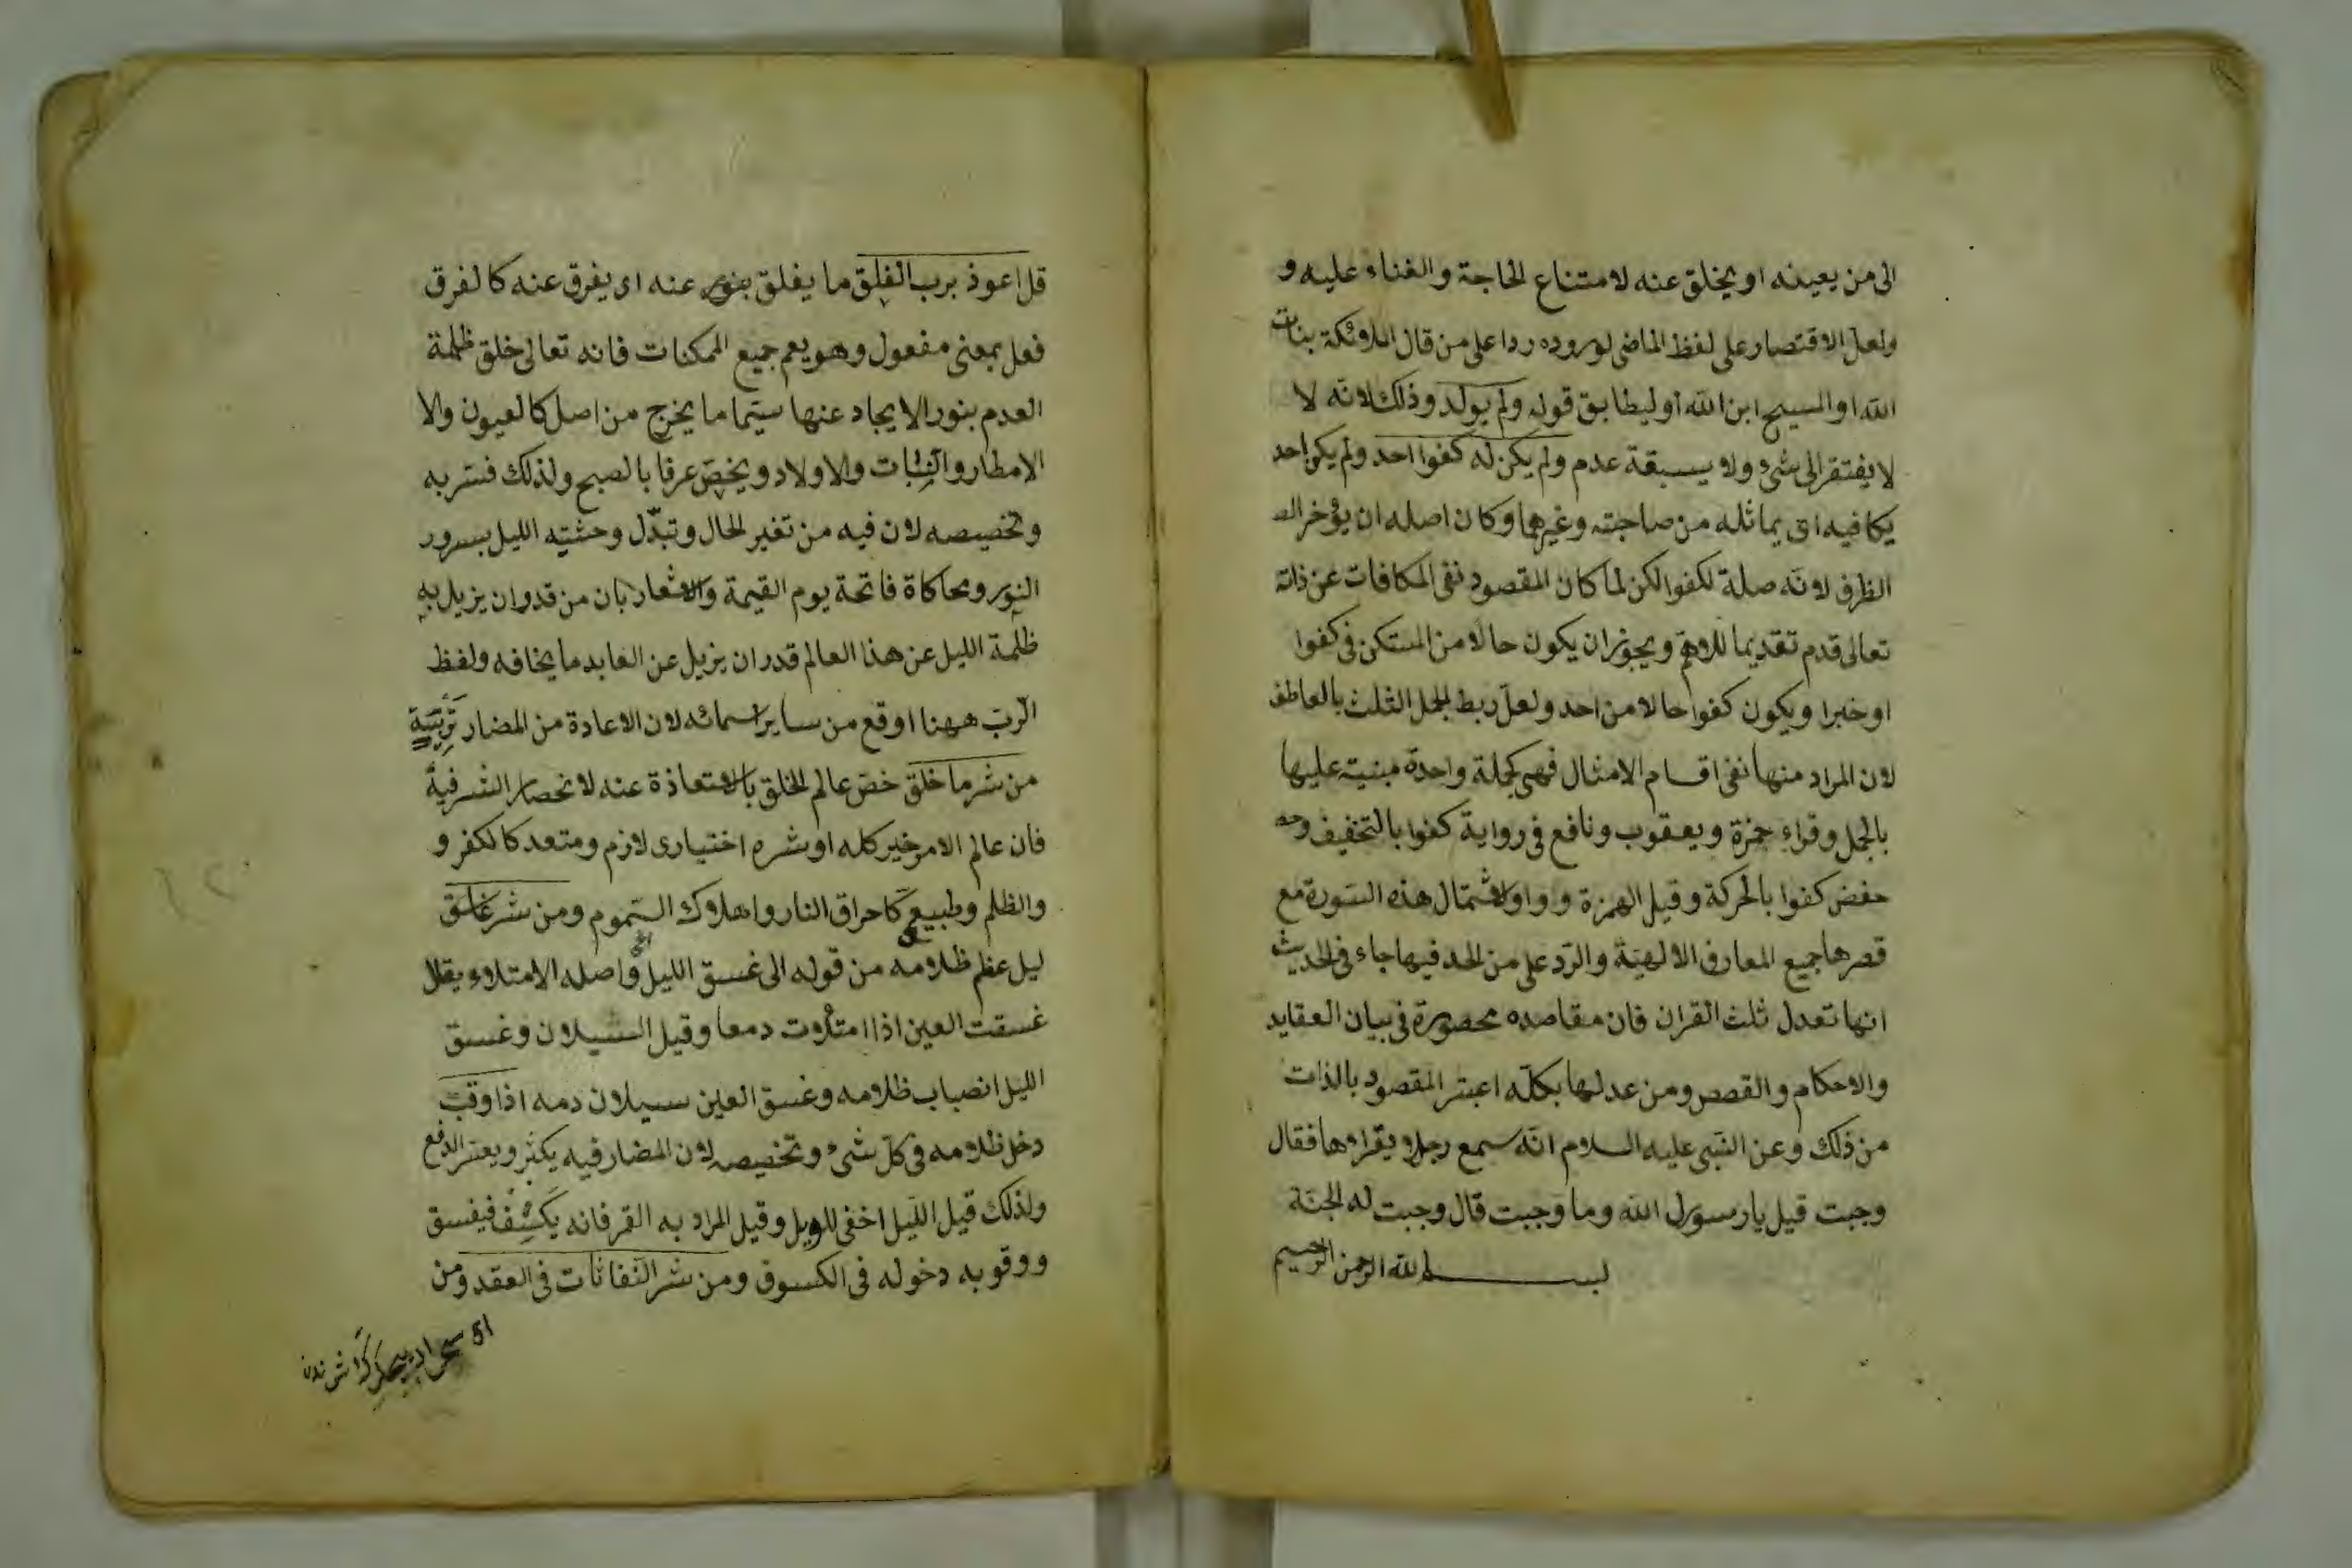 الى من يعينه او يخلق عنه لامتناع الحاجة والفناء عليه و
ولعل الاقتصار على لفظ الماضى لوروده ردا على من قال الملائكة بنات
الله او المسيح ابن الله او ليطابق قوله ولم يولد وذلك لانه لا
لا يفتقر الى شئ ولا يسبقة عدم ولم يكن له كفوا احد ولم يكن احد
يكافيه اى يماثله من صاحبته وغيرهما وكان اصله ان يؤخر الـ
الظرف لانه صلة لكفوا لكن لما كان المقصود نفى المكافات عن ذاته
تعالى قدم تقديما للاهم ويجوز ان يكون حالا من المستكن فى كفوا
او خبرا ويكون كفوا حالا من احد ولعل ربط الجمل الثلث بالعاطف
لان المراد منها نفى اقسام الامثال فهى كجملة واحدة مبنية عليها
بالجمل وقراء حمزة ويعقوب ونافع فى رواية كفوا بالتخفيف وحـ
حفض كفوا بالحركة وقيل الهمزة وواو ولاشتمال هذه السورة مع
قصرها جميع المعارف الالهية والرد على من الحد فيها جاء فى الحديث
انها تعدل ثلث القران فان مقاصده محصورة فى بيان العقايد
والاحكام والقصص ومن عدلها بكله اعتبر المقصود بالذات
من ذلك وعن النبى عليه السلام انه سمع رجلا يقراءها فقال
وجبت قيل يا رسول الله وما وجبت قال وجبت له الجنة
بسم الله الرحمن الرحيم
قل اعوذ برب الفلق ما يفلق بنور عنه اى يفرق عنه كالفرق
فعل بمعنى مفعول وهو يعم جميع الممكنات فانه تعالى خلق ظلمة
العدم بنور الايجاد عنها سيما ما يخرج من اصل كالعيون والا
الامطار والنبات والاولاد ويخص عرفا بالصبح ولذلك فسر به
وتخصيصه لان فيه من تغير الحال وتبدل وحشته الليل بسرور
النور ومحاكاة فاتحة يوم القيمة والاشعار بان من قدر ان يزيل به
ظلمة الليل عن هذا العالم قدر ان يزيل عن العابد ما يخافه ولفظ
الرب ههنا اوقع من ساير اسمائه لان الاعادة من المضار تربية
من شر ما خلق خص عالم الخلق بالاستعاذة عنه لانحصار الشر فيه
فان عالم الامر خير كله او شره اختيارى لازم ومتعد كالكفر و
والظلم وطبيعى كاحراق النار واهلاك السموم ومن شر غاسق
ليل عظم ظلامه من قوله الى غسق الليل واصله الامتلاء يقلا
غسقت العين اذا امتلات دمعا وقيل السيلان وغسق
الليل انصباب ظلامه وغسق العين سيلان دمه اذا وقب
دخل ظلامه فى كل شئ وتخصيصه لان المضار فيه يكثر ويعسر الدفع
ولذلك قيل الليل اخفى للويل وقيل المراد به القمر فانه يكسف فيغسق
ووقوبه دخوله فى الكسوف ومن شر النفاثات فى العقد ومن